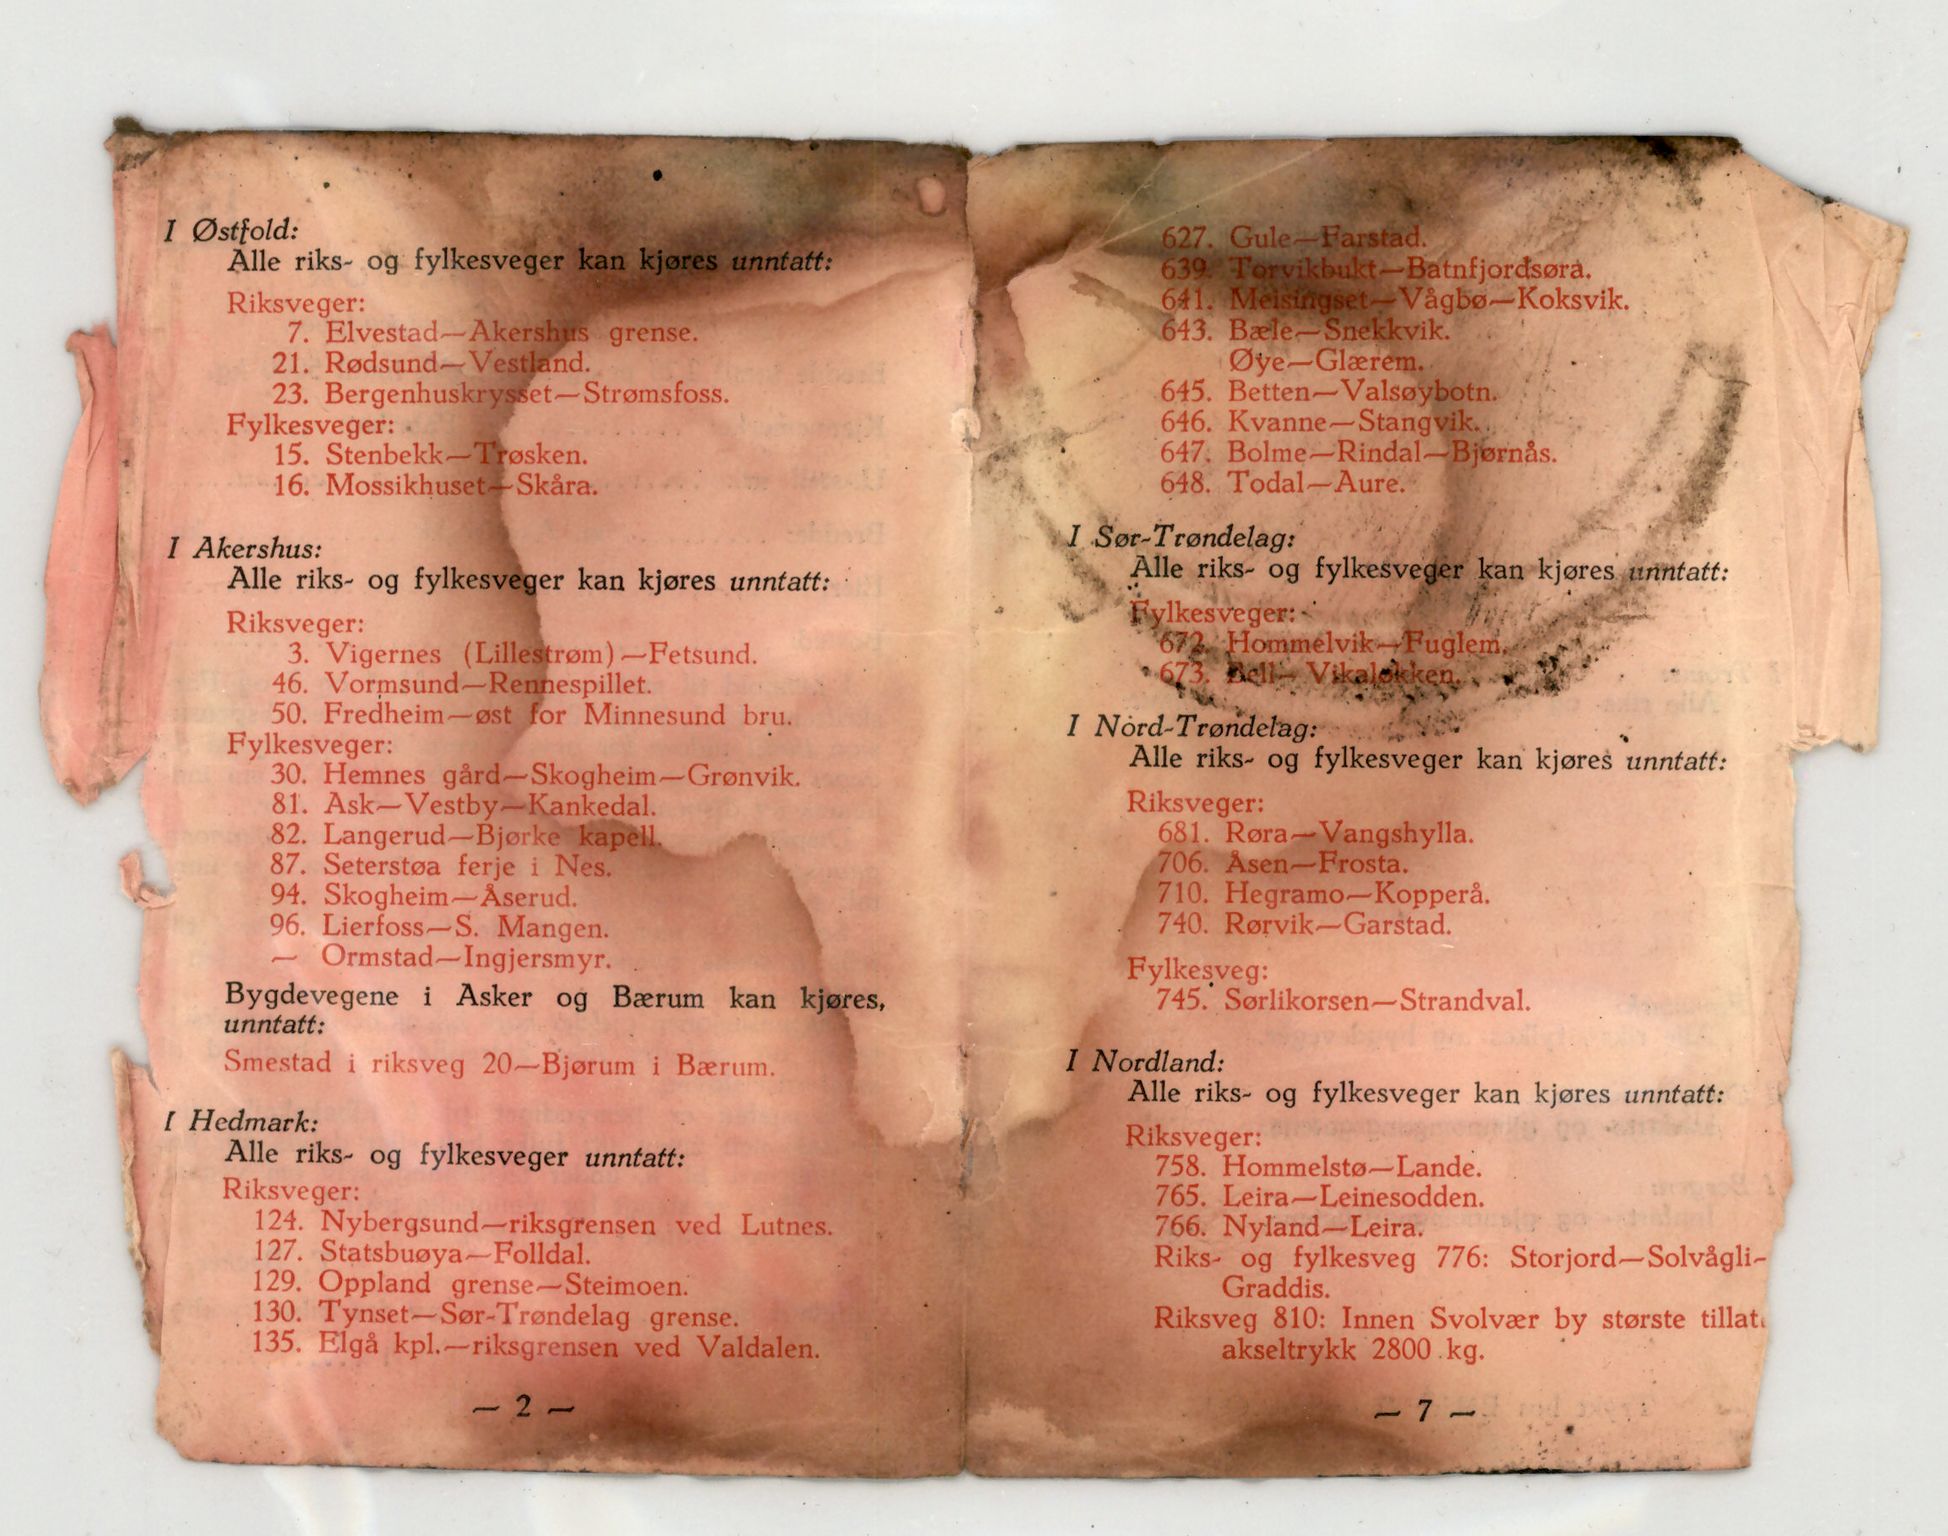 I Østfold:
Alle riks- og fylkesveger kan kjøres unntatt:
Riksveger:
7. Elvestad—Akershus grense.
21. Rødsund—Vestland.
23. Bergenhuskrysset—Strømsfoss.
Fylkesveger:
15. Stenbekk—Trøsken.
16. Mossikhuset—Skåra.
I Akershus:
Alle riks- og fylkesveger kan kjøres unntatt:
Riksveger:
3. Vigernes (Lillestrøm)—Fetsund.
46. Vormsund—Rennespillet.
50. Fredheim—øst for Minnesund bru.
Fylkesveger:
30. Hemnes gård—Skogheim—Grønvik.
81. Ask—Vestby—Kankedal.
82. Langerud—Bjørke kapell.
87. Seterstøa ferje i Nes.
94. Skogheim—Åserud.
96. Lierfoss—S. Mangen.
— Ormstad—Ingjersmyr.
Bygdevegene i Asker og Bærum kan kjøres,
unntatt:
Smestad i riksveg 20—Bjørum i Bærum.
I Hedmark:
Alle riks- og fylkesveger unntatt:
Riksveger:
124. Nybergsund—riksgrensen ved Lutnes.
127. Statsbuøya—Folldal.
129. Oppland grense—Steimoen.
130. Tynset—Sør-Trøndelag grense.
135. Elgå kpl.—riksgrensen ved Valdalen.
— 2 —
627. Gule—Farstad.
639. Torvikbukt—Batnfjordsøra.
641. Meisingset—Vågbø—Koksvik.
643. Bæle—Snekkvik.
Øye—Glærem.
645. Betten—Valsøybotn.
646. Kvanne—Stangvik.
647. Bolme—Rindal—Bjørnås.
648. Todal—Aure.
I Sør-Trøndelag:
Alle riks- og fylkesveger kan kjøres unntatt:
Fylkesveger:
672. Hommelvik—Fuglem.
673. Sell—Vikaløkken.
I Nord-Trøndelag:
Alle riks- og fylkesveger kan kjøres unntatt:
Riksveger:
681. Røra—Vangshylla.
706. Åsen—Frosta.
710. Hegramo—Kopperå.
740. Rørvik—Garstad.
Fylkesveg:
745. Sørlikorsen—Strandval.
I Nordland:
Alle riks- og fylkesveger kan kjøres unntatt:
Riksveger:
758. Hommelstø—Lande.
765. Leira—Leinesodden.
766. Nyland—Leira.
Riks- og fylkesveg 776: Storjord—Solvågli-
Graddis.
Riksveg 810: Innen Svolvær by største tillat.
akseltrykk 2800 kg.
— 7 —